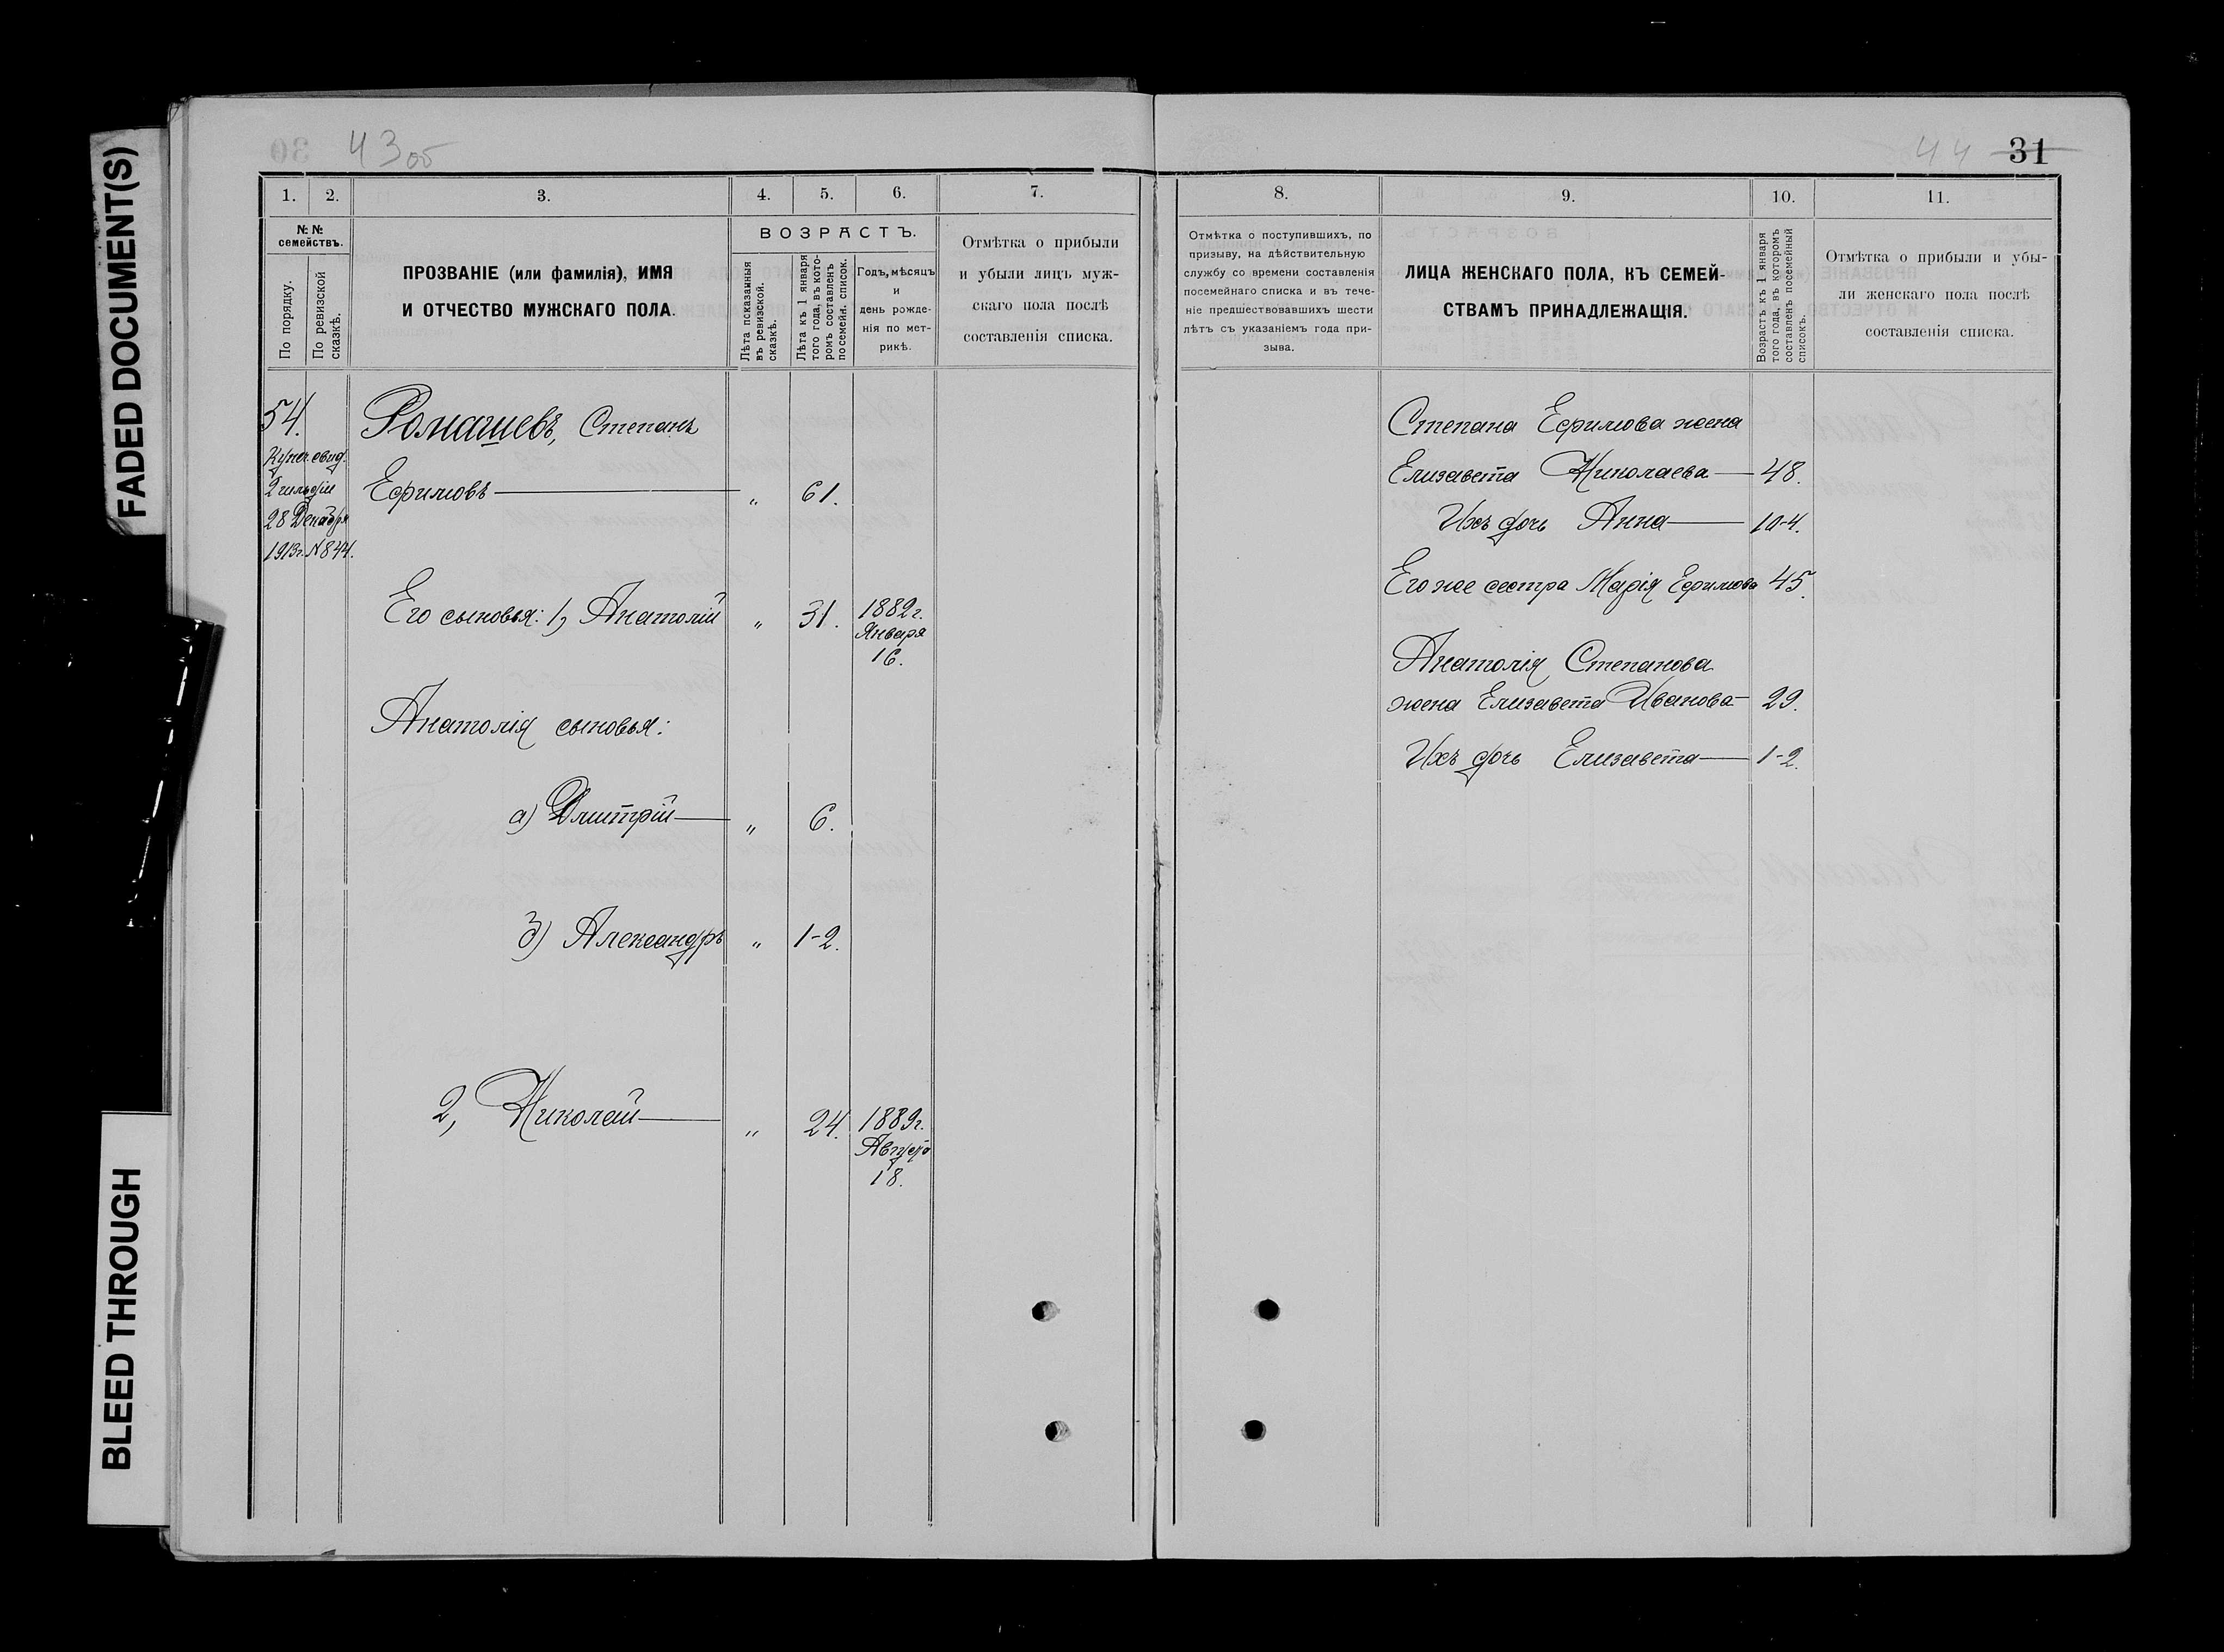 FADED DOCUMENT(S)
BLEED THROUGH
43 об
1. 2. 3. 4. 5. 6. 7.
№№ семействъ.
По порядку.
По ревизской сказкѣ.
ПРОЗВАНІЕ (или фамилія), ИМЯ
И ОТЧЕСТВО МУЖСКАГО ПОЛА.
ВОЗРАСТЪ.
Лѣта показанныя въ ревизской. сказкѣ.
Лѣта къ 1 января того года, въ кото-ромъ составленъ посемейн. список.
Годъ, мѣсяцъ
и
день рожде-
нія по мет-
рикѣ.
Отмѣтка о прибыли
и убыли лицъ муж-
скаго пола послѣ
составленія списка.
54.
Купеч. свид.
2 гильдіи
28 Декабря
1913г. №844.
Ромашевъ, Степанъ
Ефимовъ — „ 61.
Его сыновья: 1, Анатолій „ 31. 1882г.
Января
16.
Анатолія сыновья:
а) Дмитрій — „ 6.
б) Александръ „ 1-2.
2, Николай — „ 24. 1889г.
Августа
18.
44 31
8. 9. 10. 11.
Отмѣтка о поступившихъ, по
призыву, на дѣйствительную
службу со времени составленія
посемейнаго списка и въ тече-
ніе предшествовавшихъ шести
лѣтъ съ указаніемъ года при-
зыва.
ЛИЦА ЖЕНСКАГО ПОЛА, КЪ СЕМЕЙ-
СТВАМЪ ПРИНАДЛЕЖАЩІЯ.
Возрастъ къ 1 января
того года, въ которомъ
составленъ посемейный
списокъ.
Отмѣтка о прибыли и убы-
ли женскаго пола послѣ
составленія списка.
Степана Ефимова жена
Елизавета Николаева — 48.
Ихъ дочь Анна — 10-4.
Его же сестра Марія Ефимова 45.
Анатолія Степанова
жена Елизавета Иванова — 29.
Ихъ дочь Елизавета — 1-2.